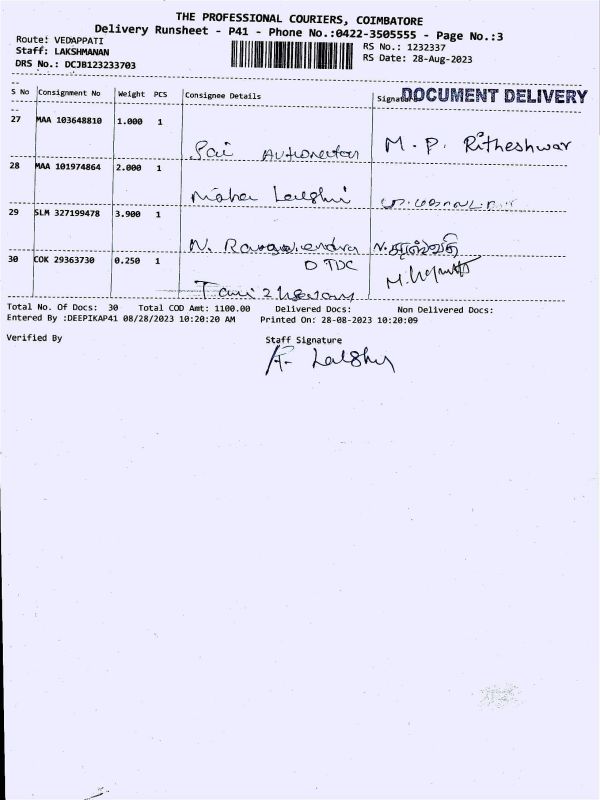 THE PROFESSIONAL COURIERS, COIMBATORE
Delivery Runsheet - P41 - Phone No.:0422-3505555 - Page No.:3
Route: VEDAPPATI
RS No.: 1232337
Staff: LAKSHMANAN
RS Date: 28-Aug-2023
DRS No.: DCJB123233703
S No Consignment No Weight PCS Consignee Details
DOCUMENT DELIVERY
27 MAA 103648810 1.000 1
Sai M. P. Ritheshwar
28 MAA 101974864 2.000 1
Maha Lakshmi
29 SLM 327199478 3.900 1
N. Ragavendra
30 COK 29363730 0.250 1 DTDC
Total No. Of Docs: 30 Total COD Amt: 1100.00 Delivered Docs: Non Delivered Docs:
Entered By :DEEPIKAP41 08/28/2023 10:20:20 AM Printed On: 28-08-2023 10:20:09
Verified By Staff Signature